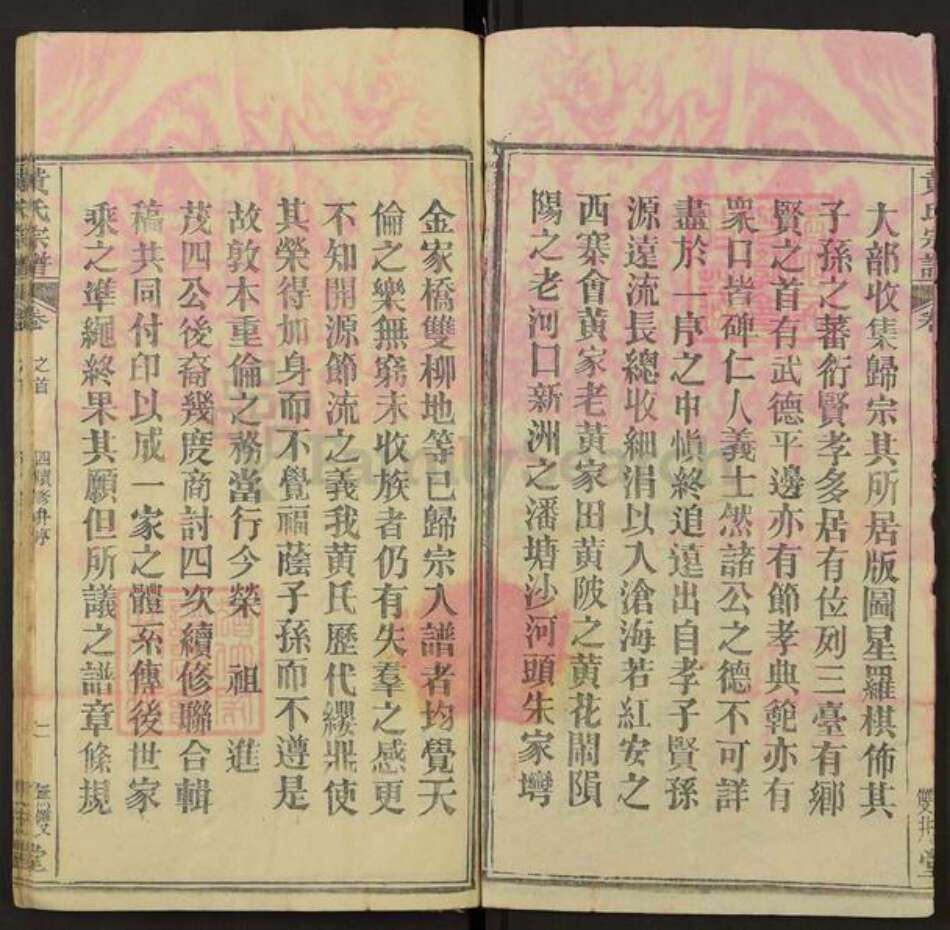 大部收集歸宗其所居版圖星羅棋佈其
子孫之蕃衍賢孝多居有位列三臺有鄉
賢之首有武德平邊亦有節孝典範亦有
衆口皆碑仁人義士然諸公之德不可詳
盡於一序之中慎終追遠出自孝子賢孫
源遠流長總收細涓以入滄海若紅安之
西寨會黃家老黃家田黃陂之黃花閙隕
陽之老河口新洲之潘塘沙河頭朱家塆
金家橋雙柳地等已歸宗入譜者均覺天
倫之樂無窮未收族者仍有失羣之感更
不知開源節流之義我黃氏歷代纓鼎使
其榮得加身而不覺福蔭子孫而不遵是
故敦本重倫之務當行今榮　祖進
茂四公後裔幾度商討四次續修聯合輯
稿共同付印以成一家之體系傳後世家
乘之準繩終果其願但所議之譜章條規
黃氏宗譜
卷
之首
四續修升序
雙井堂
黃氏宗譜